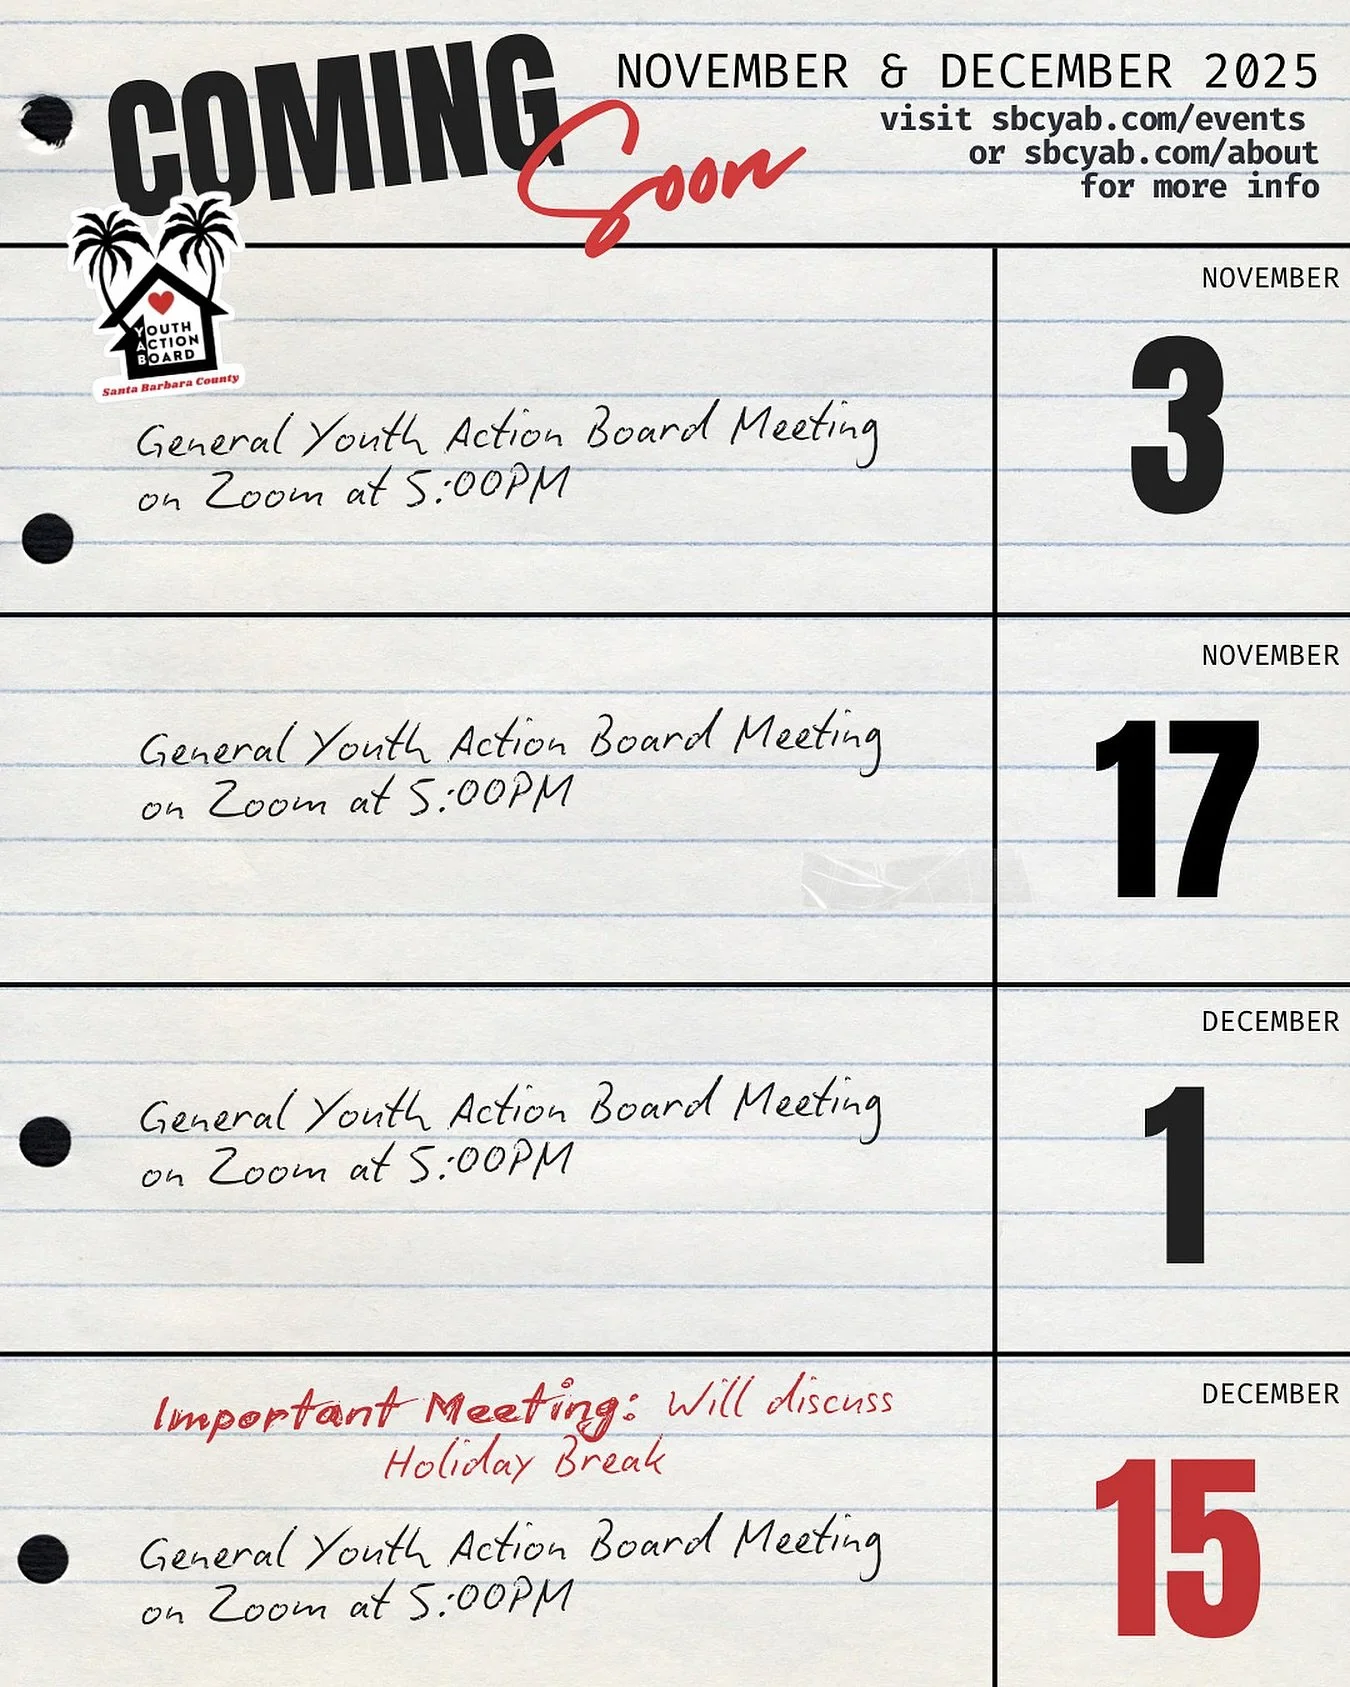 COMING
Soon
NOVEMBER & DECEMBER 2025
visit sbcyab.com/events
or sbcyab.com/about
for more info
YOUTH
ACTION
BOARD
Santa Barbara County
NOVEMBER
3
General Youth Action Board Meeting
on Zoom at 5:00PM
NOVEMBER
17
General Youth Action Board Meeting
on Zoom at 5:00PM
DECEMBER
1
General Youth Action Board Meeting
on Zoom at 5:00PM
DECEMBER
15
Important Meeting: Will discuss
Holiday Break
General Youth Action Board Meeting
on Zoom at 5:00PM